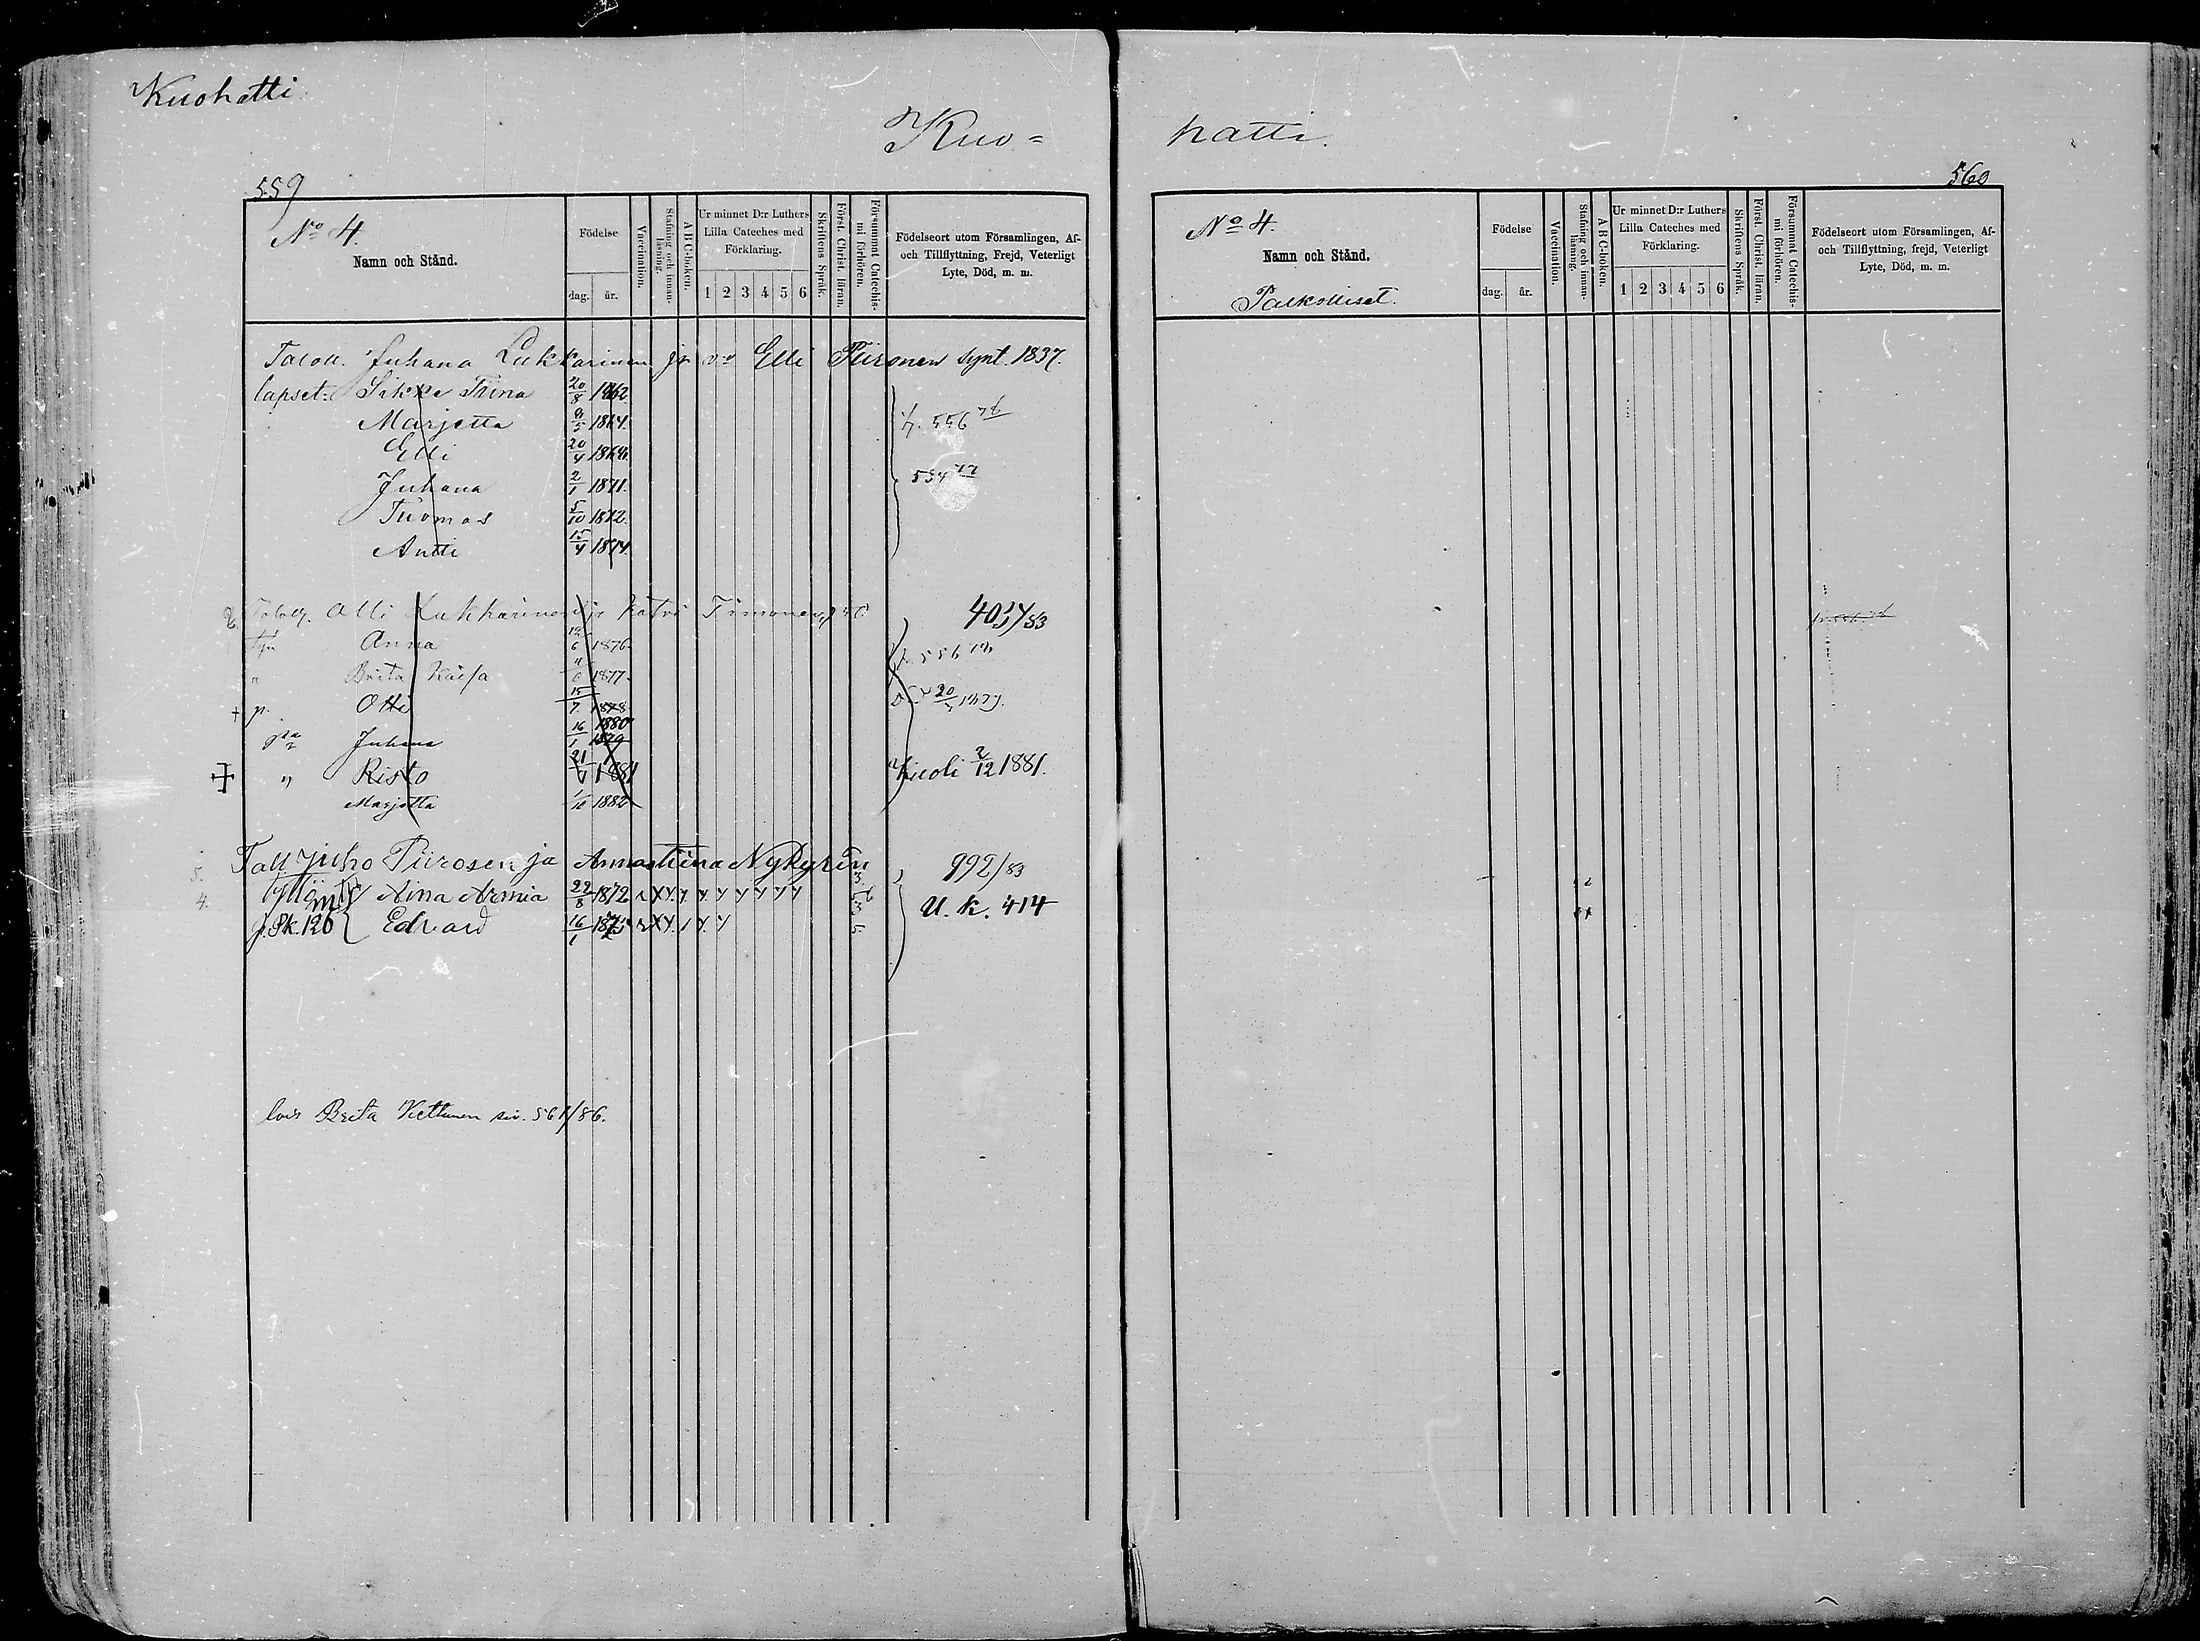 Kuohatti
Kuo=
559
No 4.
Namn och Stånd.
Födelse
dag. år.
Vaccination.
Stafning och innanläsning.
ABC-boken.
Ur minnet D:r Luthers Lilla Cateches med Förklaring.
1 2 3 4 5 6
Skriftens Språk.
Först. Christ. läran.
Försummat Catechismi förhören.
Födelseort utom Församlingen, Af- och Tillflyttning, Frejd, Veterligt Lyte, Död, m. m.
Juhana Lukkarinen ja Elli Piironen synt. 1837.
lapset: Tiina 20/8 1862.
Marjetta 1864. 556 76
Elli 20/4
Juhana 2/1 1871. 534
Tuomas 5/10 1872.
Antti 15/4 1874.
Olli Lukkarinen ja Katri Timonen 40 /83
Anna 1876.
Brita Kaisa 1877.
+ p. Olli 15/7 1878
Juhana 16/1 1880 1879
‡ " Risto 21 1881 Kuoli 2/12 1881.
Marjetta 1/10 1882
Juho Piirosen ja Annastiina Nykyrin 992/83
Aina Armia 22/8 1872 U. k. 414
Pk. 126 Edvard 16/1
Brita Kettunen siv. 561/86.
hatti.
560
No 4.
Namn och Stånd.
Födelse
dag. år.
Vaccination.
Stafning och innanläsning.
ABC-boken.
Ur minnet D:r Luthers Lilla Cateches med Förklaring.
1 2 3 4 5 6
Skriftens Språk.
Först. Christ. läran.
Försummat Catechismi förhören.
Födelseort utom Församlingen, Af- och Tillflyttning, frejd, Veterligt Lyte, Död, m. m.
Palkolliset.